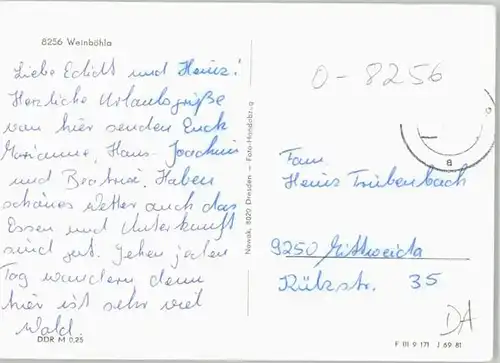 8256 Weinböhla
Liebe Edith und Heinz!
Herzliche Urlaubsgrüße
von hier senden Euch
Marianne, Hans-Joachim
und Beatrix. Haben
schönes Wetter auch das
Essen und Unterkunft
sind gut. Gehen jeden
Tag wandern denn
hier ist sehr viel
Wald.
DDR M 0,25
Nowak, 8029 Dresden — Foto-Handabzug
0-8256
Fam
Heinz Trübenbach
9250 Mittweida
35
DA
F III 9 171 J 69 81